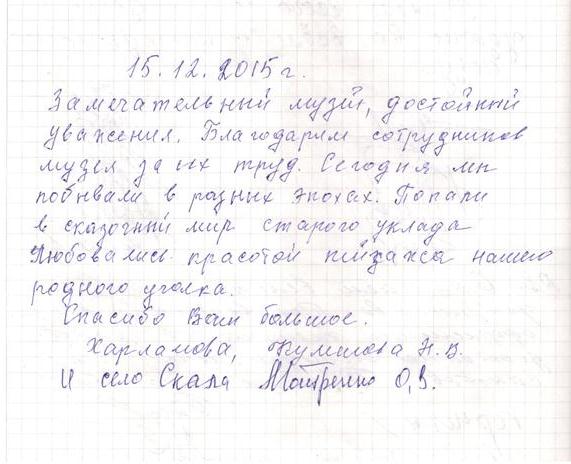 15.12.2015г.
Замечательный музэй, достойный
уважения. Благодарим сотрудников
музея за их труд. Сегодня мы
побывали в разных эпохах. Попали
в сказочный мир старого уклада
Любовались красотой пейзажа нашего
родного уголка.
Спасибо Вам большое.
Харламова, Н.В.
И село Скала О,В.